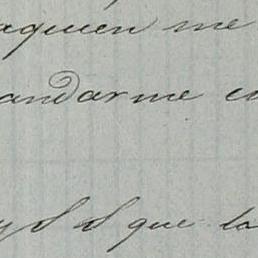 aquien me
andarme co
y S S que la